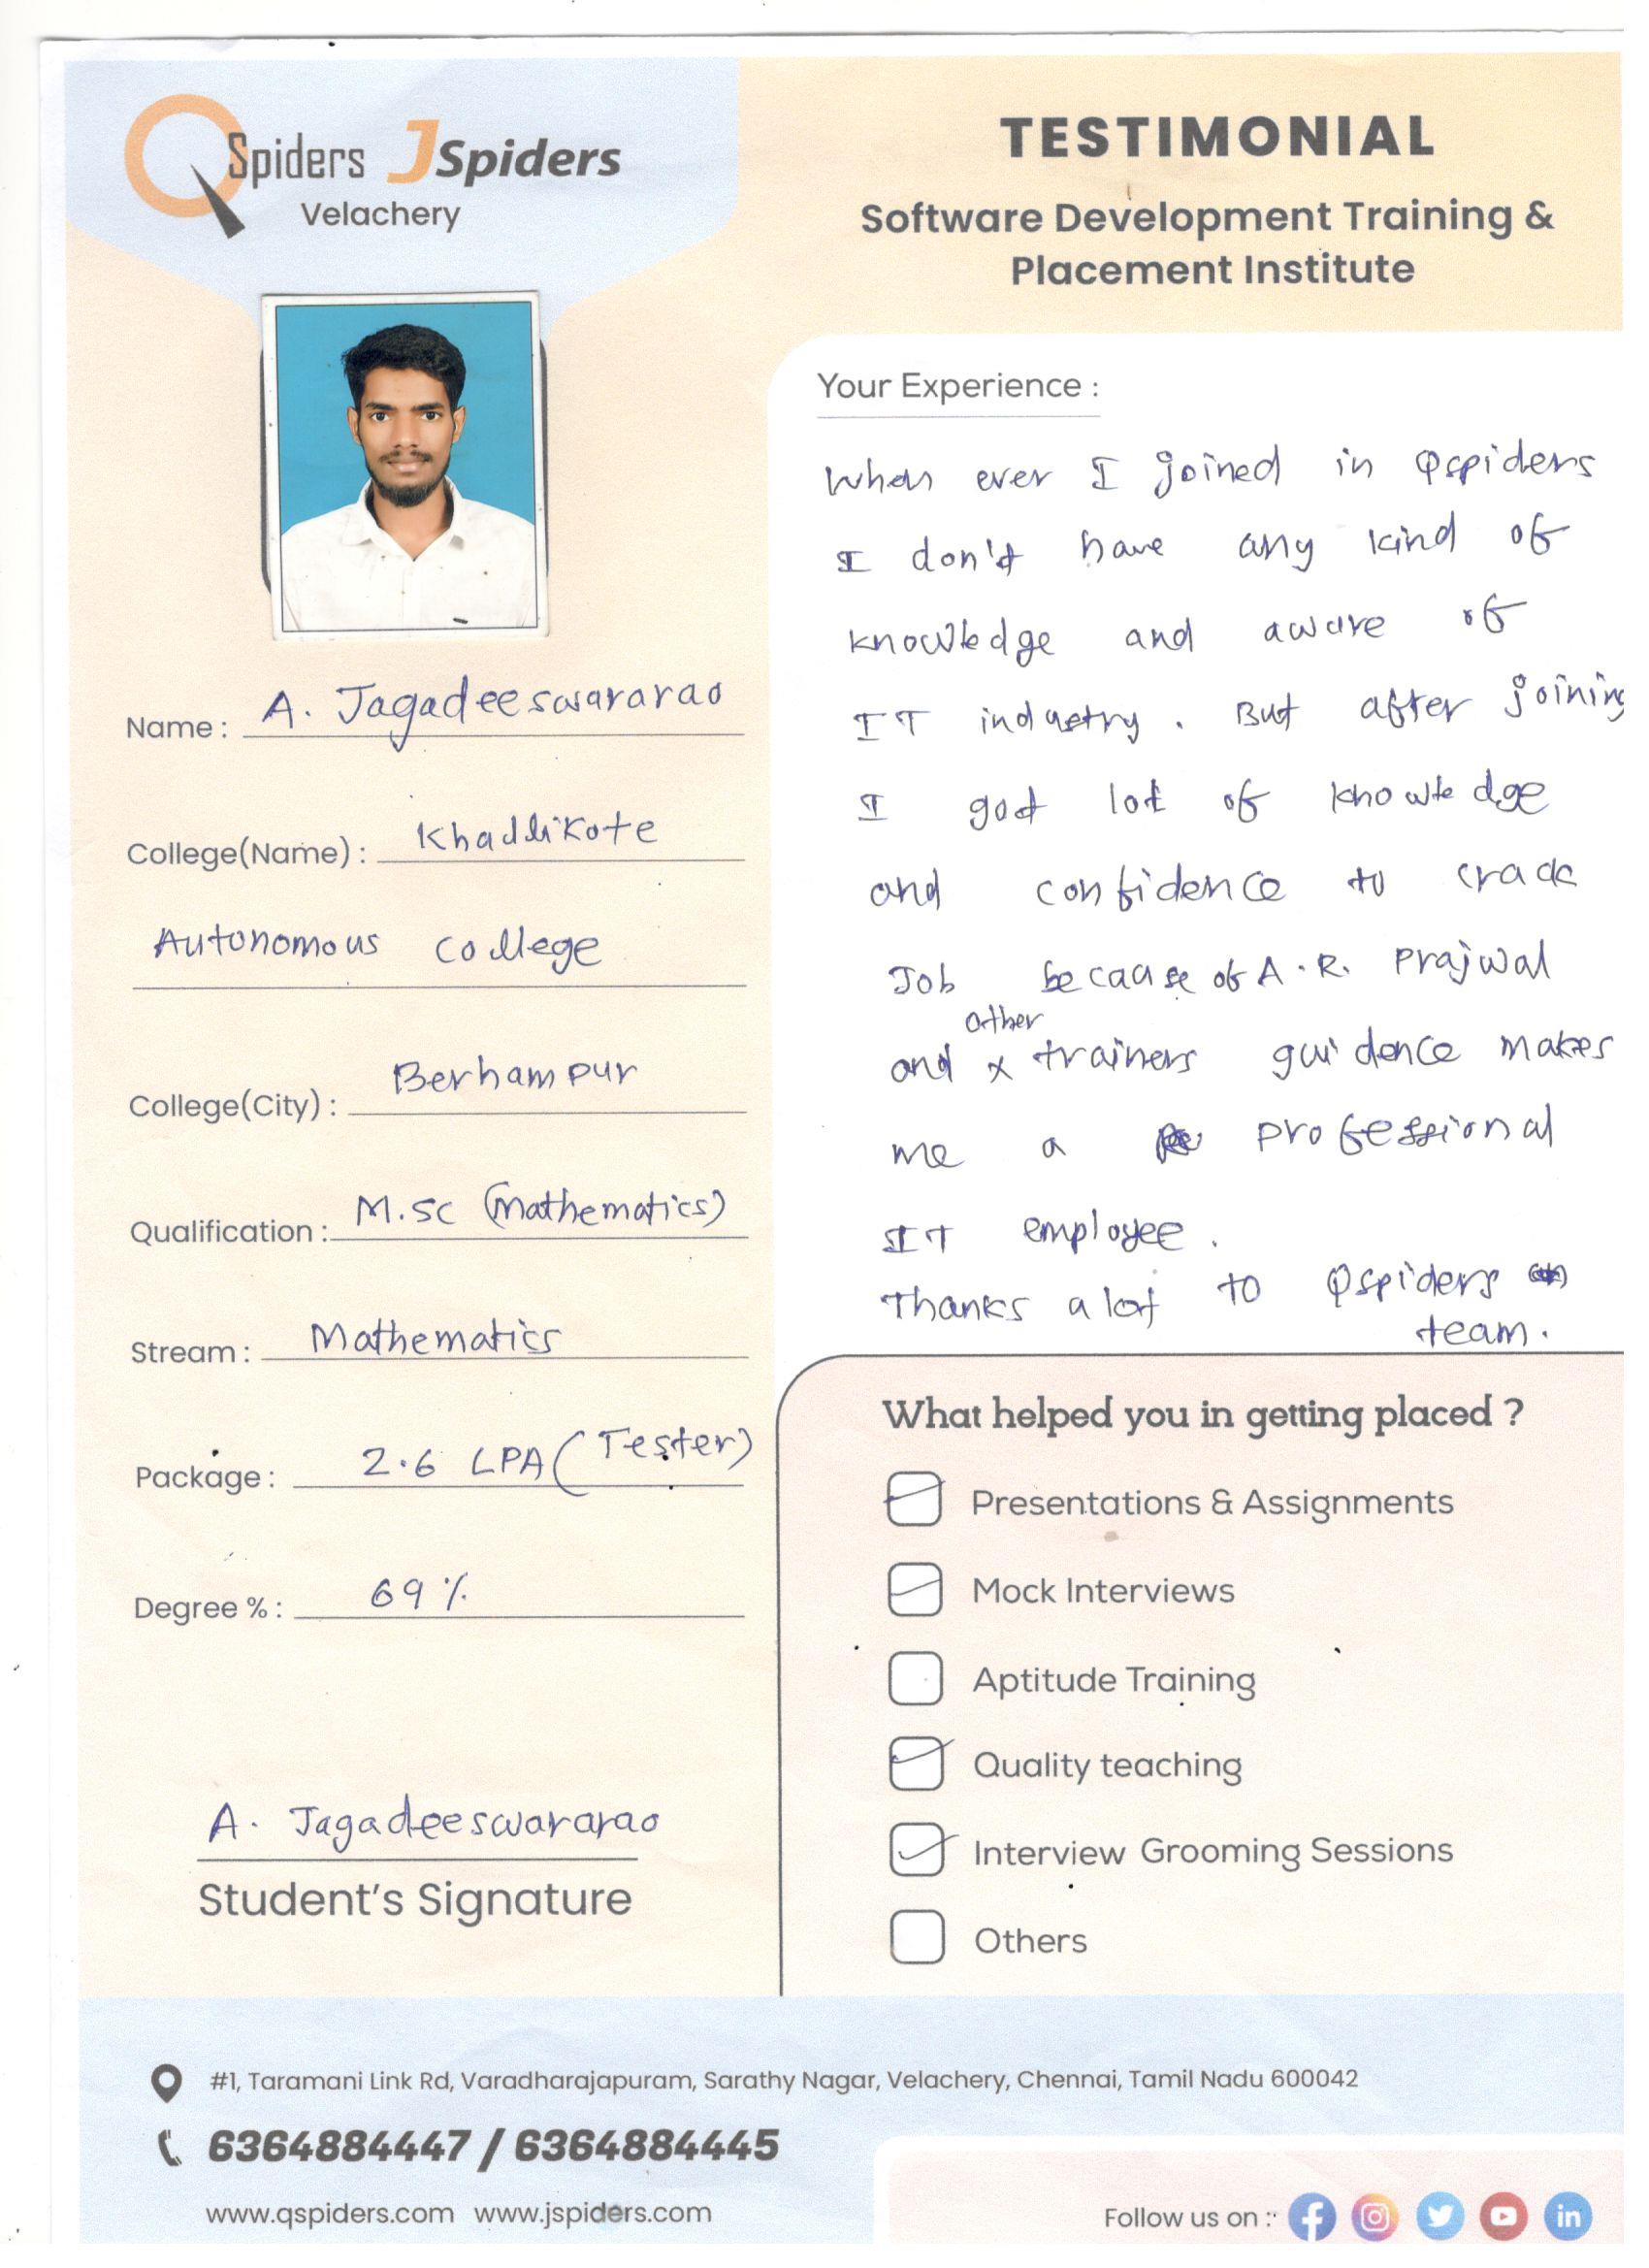 QSpiders JSpiders
Velachery
TESTIMONIAL
Software Development Training &
Placement Institute
Name : A. Jagadeeswararao
College(Name) : Khallikote
Autonomous college
College(City) : Berhampur
Qualification : M.SC (Mathematics)
Stream : Mathematics
Package : 2.6 LPA (Tester)
Degree % : 69 %
A. Jagadeeswararao
Student's Signature
Your Experience :
When ever I joined in Qspiders
I don't have any kind of
knowledge and aware of
IT industry. But after joining
I got lot of knowledge
and confidence to crack
Job because of A.R. Prajwal
and other trainers guidence makes
me a professional
IT employee.
Thanks a lot to Qspiders
team.
What helped you in getting placed ?
Presentations & Assignments
Mock Interviews
Aptitude Training
Quality teaching
Interview Grooming Sessions
Others
#1, Taramani Link Rd, Varadharajapuram, Sarathy Nagar, Velachery, Chennai, Tamil Nadu 600042
6364884447 / 6364884445
www.qspiders.com www.jspiders.com
Follow us on :